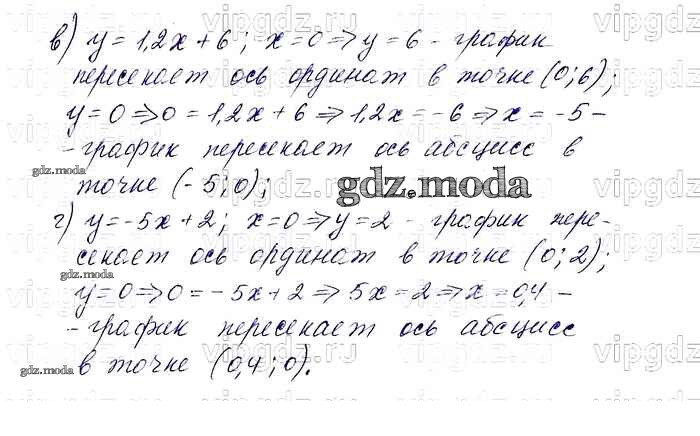 в) y = 1,2x + 6; x=0 ⇒ y = 6 - график
пересекает ось ординат в точке (0; 6);
y = 0 ⇒ 0 = 1,2x + 6 ⇒ 1,2x = -6 ⇒ x = -5 -
- график пересекает ось абсцисс в
точке (-5; 0);
г) y = -5x + 2; x=0 ⇒ y = 2 - график пере-
секает ось ординат в точке (0; 2);
y = 0 ⇒ 0 = -5x + 2 ⇒ 5x = 2 ⇒ x = 0,4 -
- график пересекает ось абсцисс
в точке (0,4; 0).
gdz.moda
gdz.moda
gdz.moda
gdz.moda
vipgdz.ru